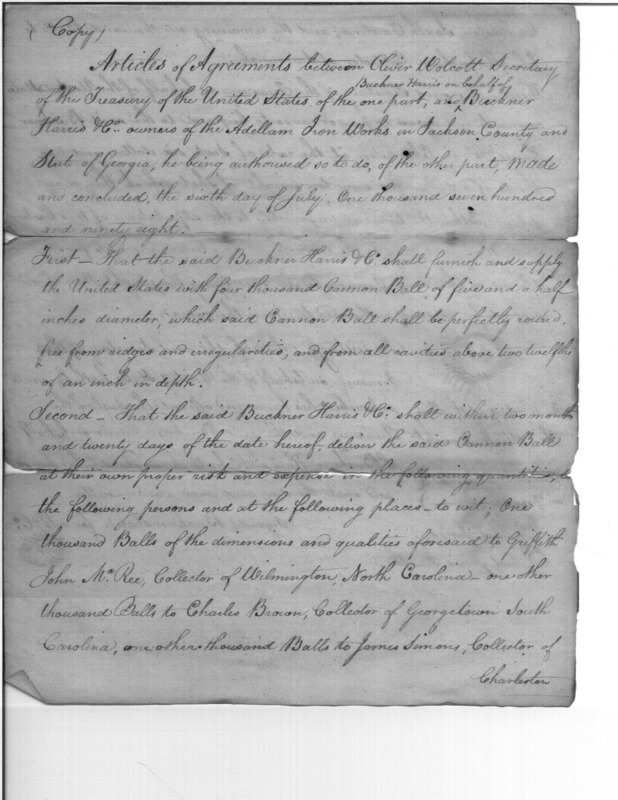 (Copy)
Articles of Agreements between Oliver Wolcott Secretary
Buckner Harris on behalf of
of the Treasury of the United States, of the one part, and Buckner
Harris & Co. owners of the Adellam Iron Works in Jackson County and
State of Georgia, he being authorised so to do, of the other part, made
and concluded, the sixth day of July. One thousand seven hundred
and ninety eight.
First – That the said Buckner Harris & Co. shall furnish and supply
the United States with four thousand Cannon Ball of five and a half
inches diameter, which said Cannon Ball shall be perfectly round,
free from ridges and irregularities, and from all cavities above two twelfths
of an inch in depth.
Second – That the said Buckner Harris & Co. shall within two months
and twenty days of the date hereof, deliver the said Cannon Ball
at their own proper risk and expense in the following quantities,
the following persons and at the following places – to wit; One
thousand Balls of the dimensions and qualities aforesaid to Griffith
John McRee, Collector of Wilmington, North Carolina – one other
thousand Balls to Charles Brown, Collector of Georgetown South
Carolina, one other thousand Balls to James Simons, Collector of
Charleston